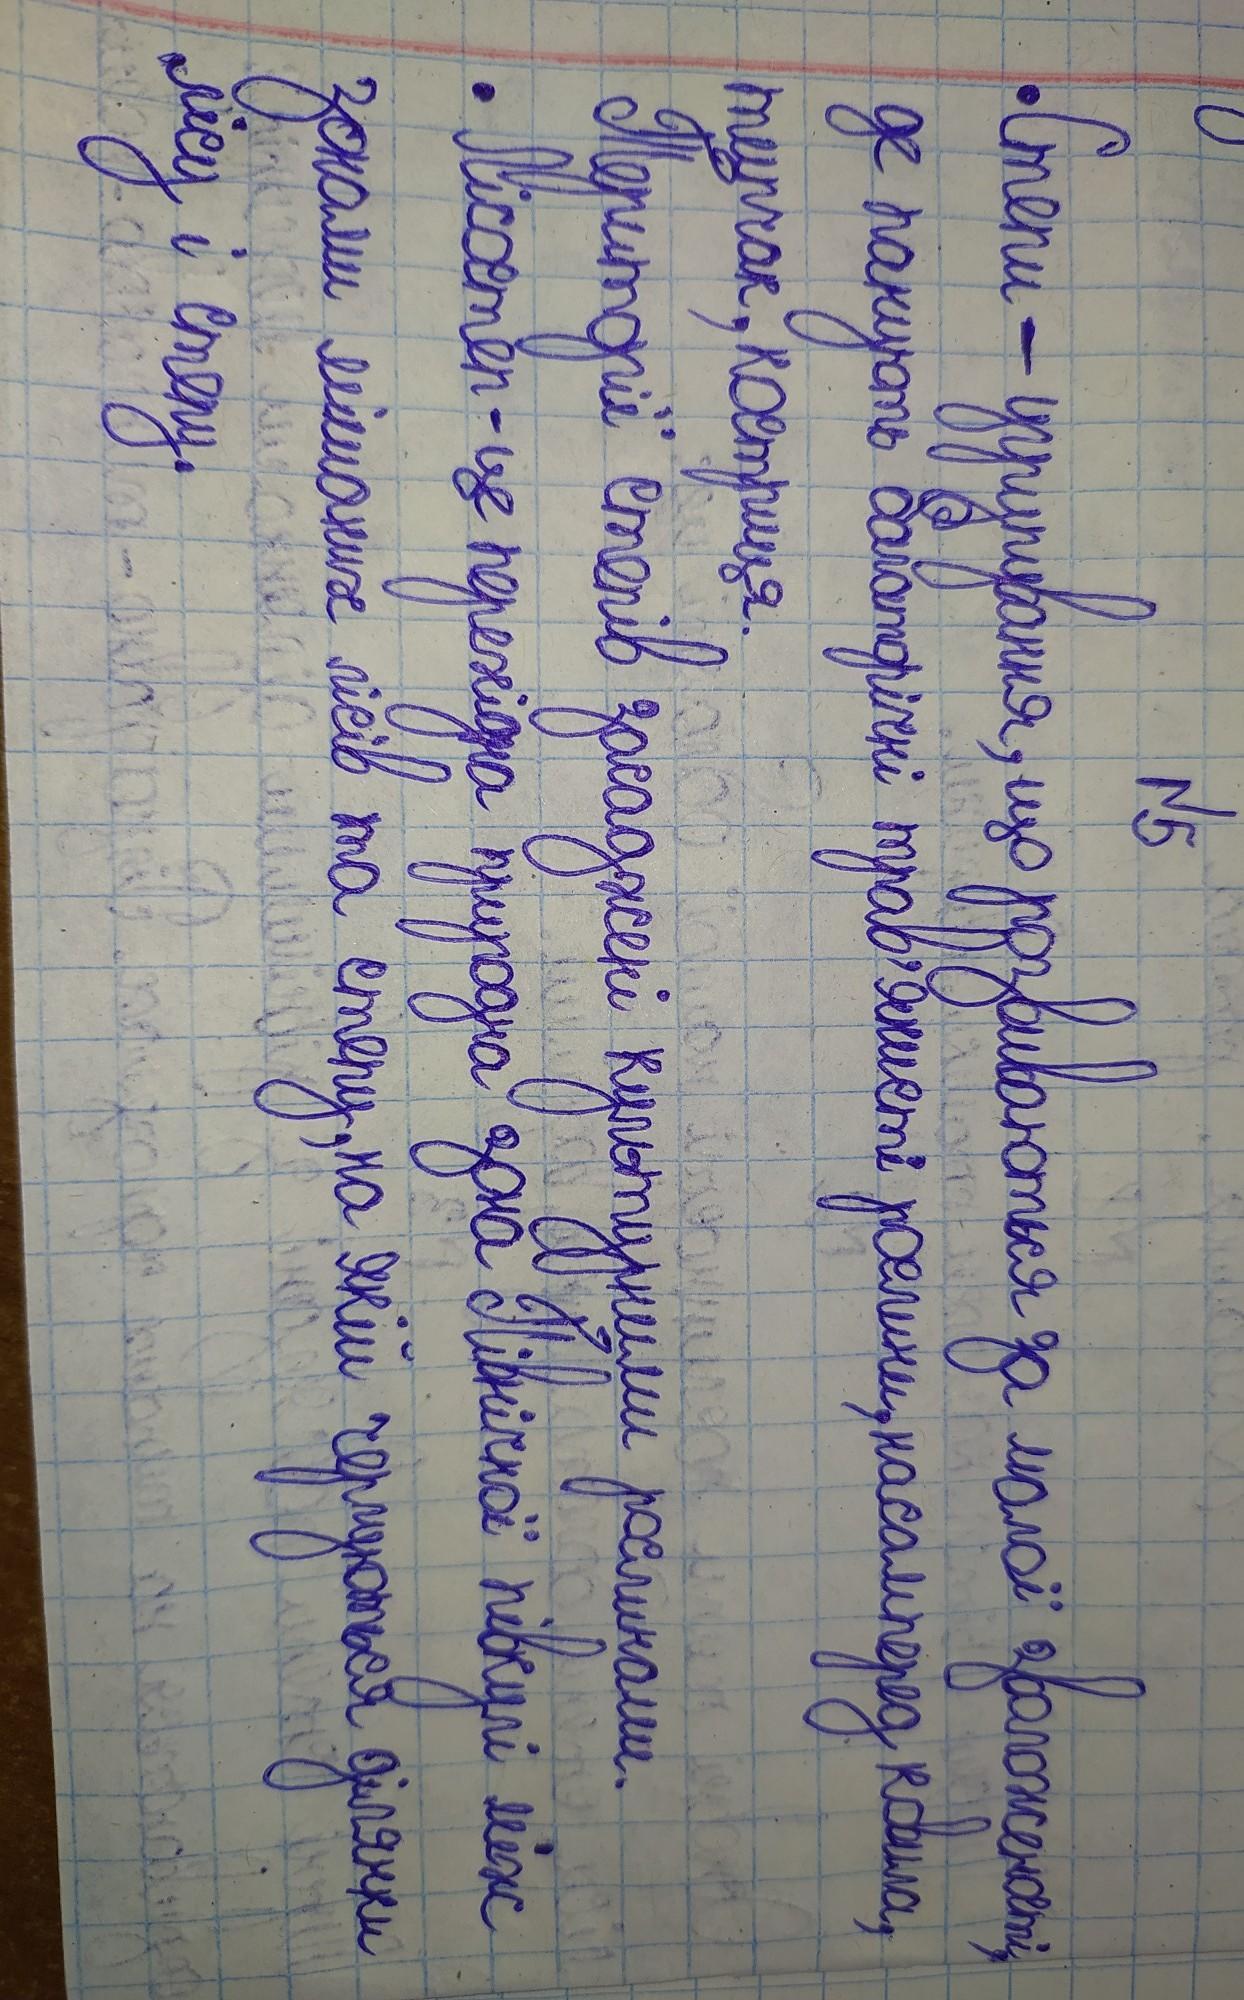 №5
• Степи – угрупування, що розвиваються за малої зволоженості,
де панують багаторічні трав'янисті рослини, насамперед ковила,
типчак, костриця.
Території степів засаджені культурними рослинами.
• Лісостеп - це перехідна природна зона Північної півкулі між
зонами мішаних лісів та степу, на якій чергуються ділянки
лісу і степу.